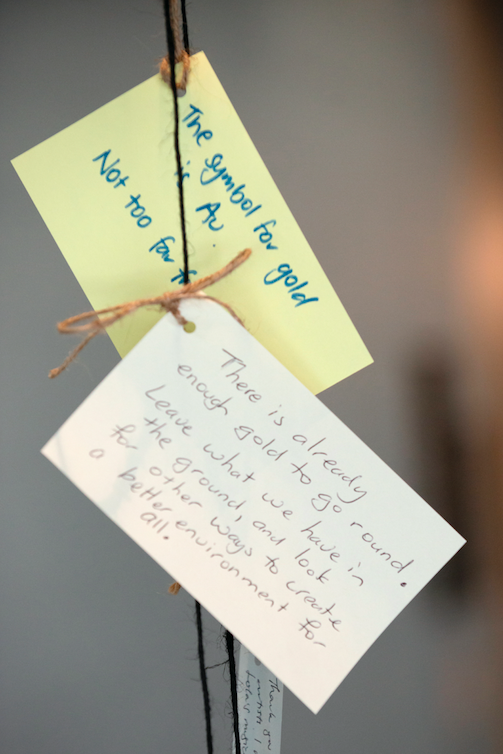 The symbol for gold
is Au
Not too far
There is already
enough gold to go round.
Leave what we have in
the ground, and look
for other ways to create
a better environment for
all.
Thank you